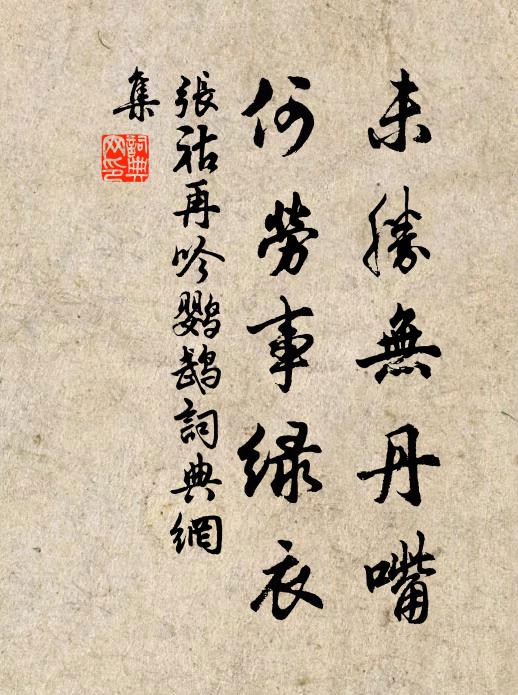 未勝無丹嘴
何勞事緑衣
張祜再吟鸚鵡詞典網
集
詞典
网印